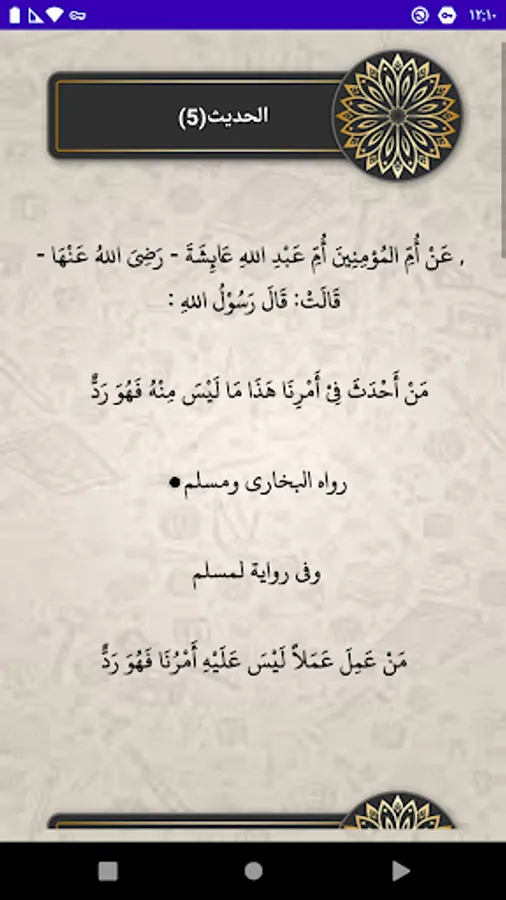 ١٢:١٠
الحديث(5)
, عَنْ أُمِّ المُؤْمِنِينَ أُمِّ عَبْدِ اللهِ عَايِشَةَ - رَضِىَ اللهُ عَنْهَا -
قَالَتْ: قَالَ رَسُوْلُ اللهِ :
مَنْ أَحْدَثَ فِىْ أَمْرِنَا هَذَا مَا لَيْسَ مِنْهُ فَهُوَ رَدٌّ
رواه البخارى ومسلم●
وفى رواية لمسلم
مَنْ عَمِلَ عَمَلاً لَيْسَ عَلَيْهِ أَمْرُنَا فَهُوَ رَدٌّ